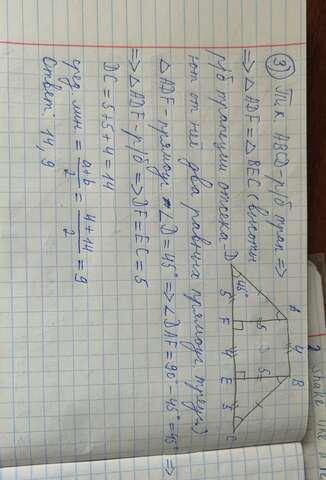 ③ Т.к ABCD - р/б трап =>
=> △ADF = △BEC (высоты
р/б трапеции отсека-
ют от неё два равных прямоуг. треуг.)
△ADF - прямоуг ∠D = 45° => ∠DAF = 90° - 45° = 45° =>
=> △ADF - р/б => DF = EC = 5
DC = 5 + 5 + 4 = 14
сред. лин = a+b/2 = 4+14/2 = 9
Ответ: 14, 9
A 4 B
5 5
45°
D 5 F 4 E 5 C
2
Shake